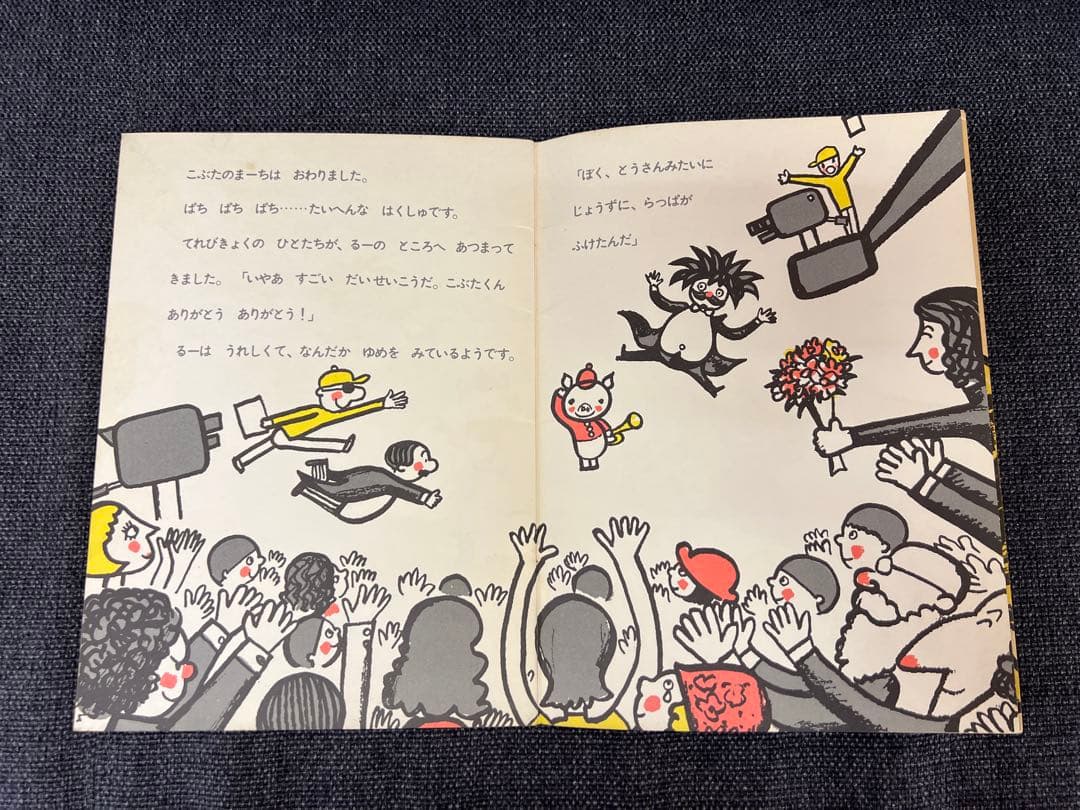 こぶたのまーちは　おわりました。
ぱち　ぱち　ぱち……たいへんな　はくしゅです。
てれびきょくの　ひとたちが、るーの　ところへ　あつまって
きました。「いやあ　すごい　だいせいこうだ。こぶたくん
ありがとう　ありがとう！」
るーは　うれしくて、なんだか　ゆめを　みているようです。
「ぼく、とうさんみたいに
じょうずに、らっぱが
ふけたんだ」